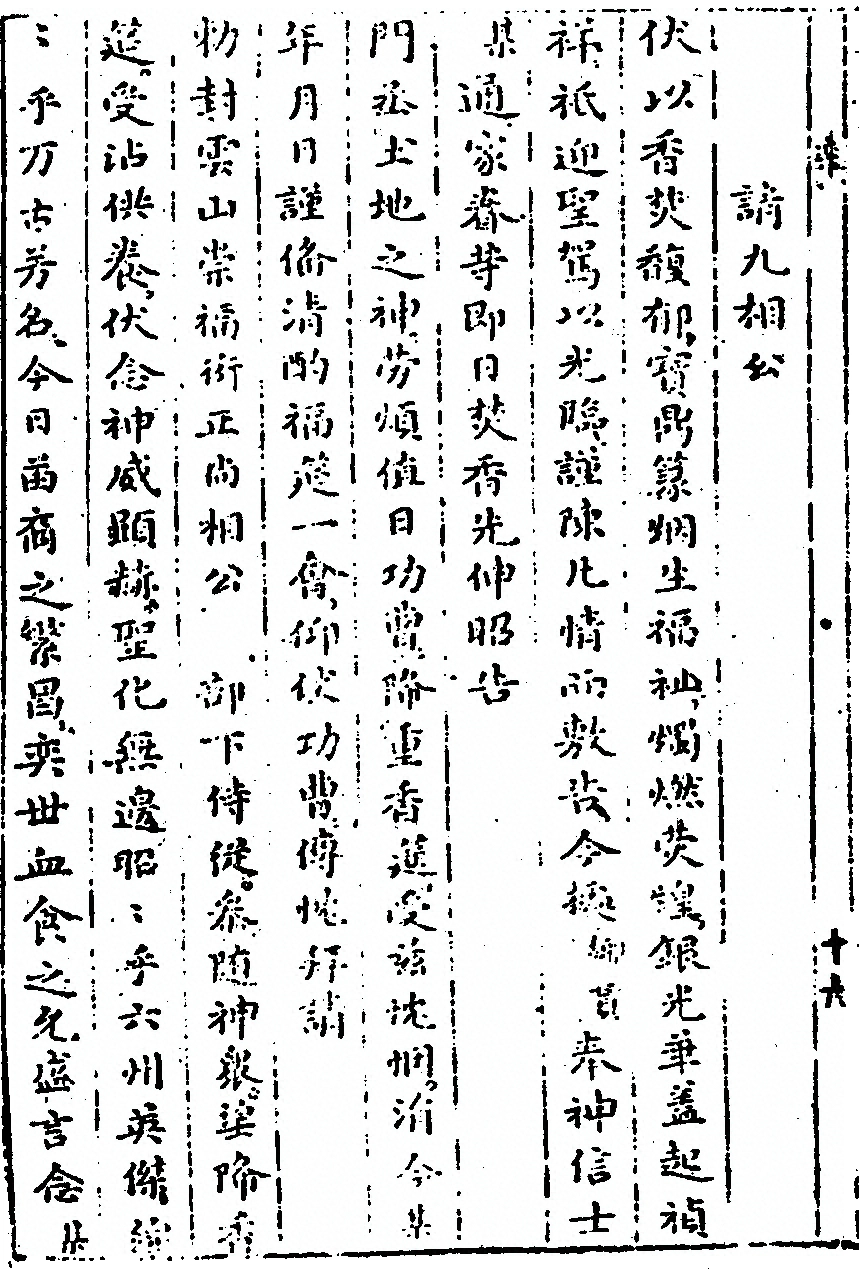 請九相公
伏以香焚馥郁,寶鼎篆烟生福祉,燭燃熒煌,銀光華蓋起禎
祥,祇迎聖駕以光臨,謹陳凡情而敷告今據 奉神信士
某通家眷等即日焚香先伸昭告
門丞土地之神,勞煩值日功曹,降重香筵,受茲忱悃。涓今某
年月日謹俻清酌福筵一會,仰伏功曹傳忱拜請
勅封雲山崇福衙正尚相公 部下侍從。叅随神衆。望降香
筵。受沾供养,伏念神威顕赫。聖化無邊昭〻乎六州英傑
〻乎万古芳名。今日苗裔之繁昌,奕世血食之允盛言念某
十六